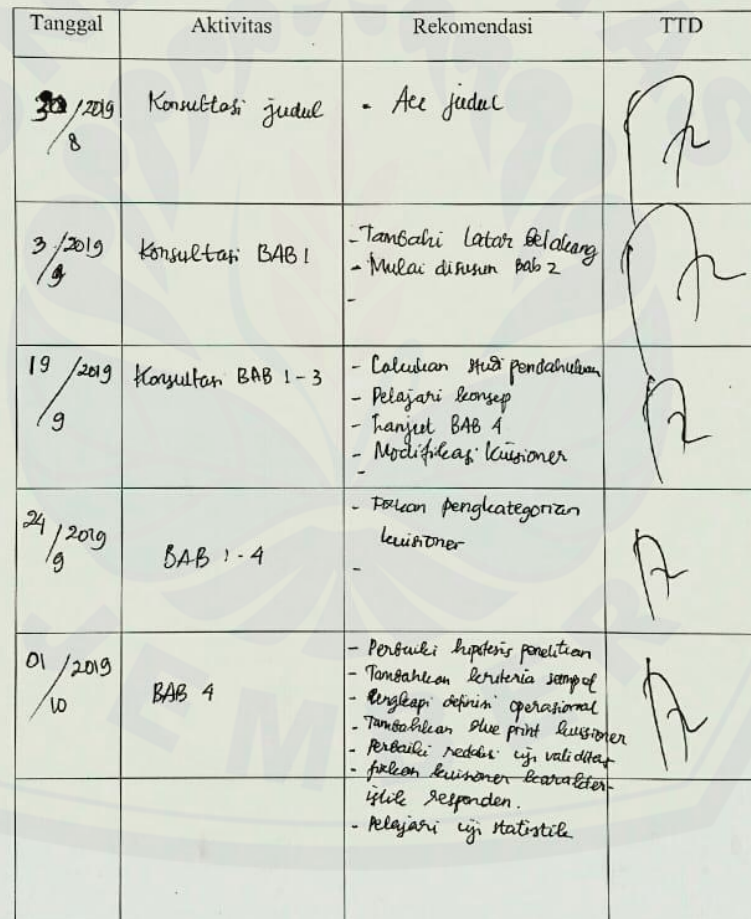 Tanggal Aktivitas Rekomendasi TTD
30/8 2019 Konsultasi judul - Acc judul
3/9 2019 Konsultasi BAB 1 - Tambahi Latar Belakang
- Mulai disusun Bab 2
-
19/9 2019 Konsultasi BAB 1-3 - Lakukan studi pendahuluan
- Pelajari konsep
- Lanjut BAB 4
- Modifikasi kuisioner
-
24/9 2019 BAB 1-4 - Fixkan pengkategorian
kuisioner
-
01/10 2019 BAB 4 - Perbaiki hipotesis penelitian
- Tambahkan kriteria sampel
- Lengkapi definisi operasional
- Tambahkan blue print kuisioner
- Perbaiki redaksi uji validitas
- fixkan kuisioner karakter-
istik responden.
- Pelajari uji statistik
JEMBER